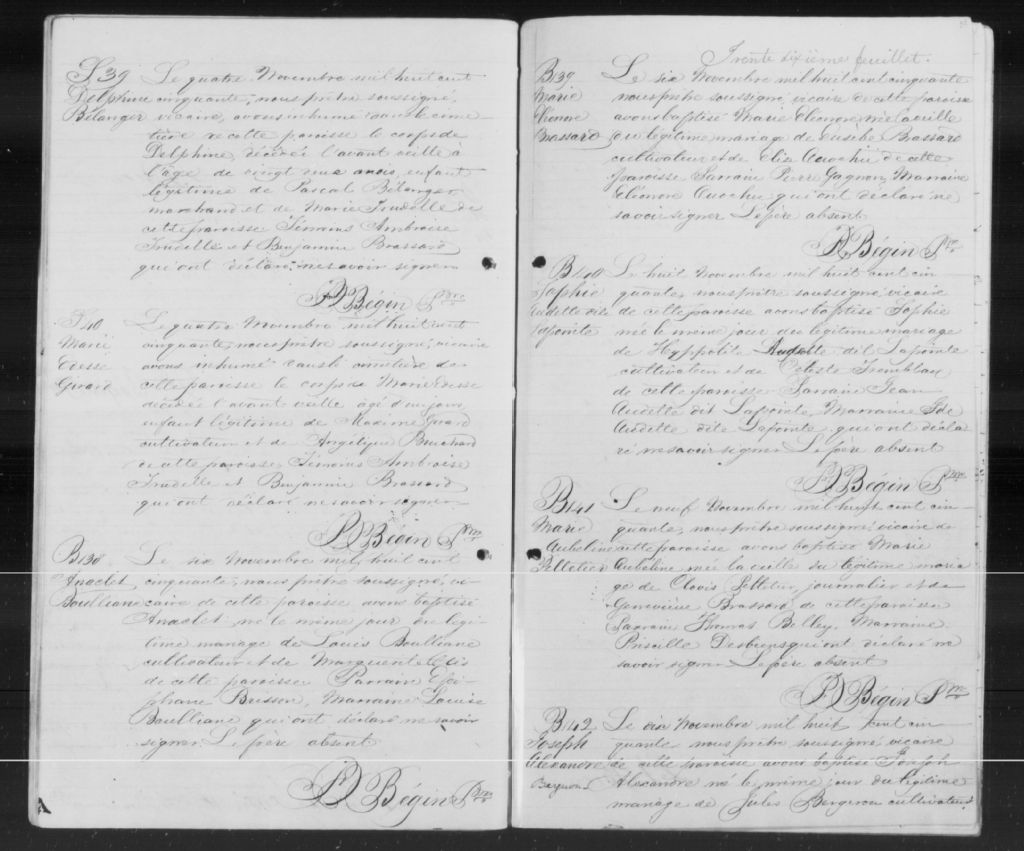 S39
Delphine
Bélanger
Le quatre Novembre mil huit cent
cinquante, nous prêtre soussigné,
vicaire, avons inhumé dans le cime
tière de cette paroisse le corps de
Delphine, décédée l'avant veille à
l'âge de vingt ans, enfant
légitime de Pascal Bélanger
marchand et de Marie Trudelle de
cette paroisse Témoins Ambroise
Trudelle et Benjamin Brassard
qui ont déclaré ne savoir signer
Bégin Ptre
S40
Marie
Girard
Le quatre Novembre mil huit cent
cinquante, nous prêtre soussigné, vicaire
avons inhumé dans le cimetière de
cette paroisse le corps de Marie
décédée l'avant veille âgé d'un jour,
enfant légitime de Maxime Girard
cultivateur et de Angélique Bouchard
de cette paroisse, Témoins Ambroise
Trudelle et Benjamin Brassard
qui ont déclaré ne savoir signer
Bégin Ptre
B138
Anaclet
Boulliane
Le six Novembre mil huit cent
cinquante, nous prêtre soussigné, vi-
caire de cette paroisse avons baptisé
Anaclet né le même jour du légi-
time mariage de Louis Boulliane
cultivateur et de Marguerite
de cette paroisse Parrain
Brisson, Marraine Louise
Boulliane qui ont déclaré ne savoir
signer Le père absent
Bégin Ptre
Trente dixième feuillet.
B139
Marie
Eléonore
Brassard
Le six Novembre mil huit cent cinquante
nous prêtre soussigné vicaire de cette paroisse
avons baptisé Marie Eléonore, née la veille
du légitime mariage de Eusèbe Brassard
cultivateur et de de cette
paroisse Parrain Pierre Gagnon, Marraine
Eléonore qui ont déclaré ne
savoir signer Le père absent
Bégin Ptre
B140
Sophie
Audette dite
Lapointe
Le huit Novembre mil huit cent cin
quante, nous prêtre soussigné vicaire
de cette paroisse avons baptisé Sophie
née le même jour du légitime mariage
de Hyppolite Audette dit Lapointe
cultivateur et de Céleste Tremblay
de cette paroisse Parrain Jean
Audette dit Lapointe, Marraine
Audette dite Lapointe, qui ont décla
ré ne savoir signer Le père absent
Bégin Ptre
B141
Marie
Aubeline
Pelletier
Le neuf Novembre mil huit cent cin-
quante, nous prêtre soussigné vicaire de
cette paroisse avons baptisé Marie
Aubeline née la veille du légitime maria
ge de Clovis Pelletier, journalier et de
Geneviève Brassard de cette paroisse
Parrain Thomas Belley, Marraine
Priscille Desbiens qui ont déclaré ne
savoir signer Le père absent
Bégin Ptre
B142
Joseph
Alexandre
Bergeron
Le dix Novembre mil huit cent cin
quante nous prêtre soussigné, vicaire
de cette paroisse avons baptisé Joseph
Alexandre né le même jour du légitime
mariage de Jules Bergeron cultivateur